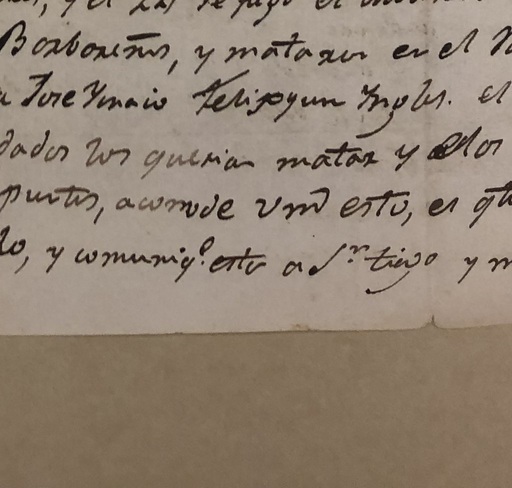 y el Rey se
Borboreños, y mataron en el
a Jose Ynacio Felix y un Yngles. el
dados los querian matar y ellos
puntos, acomode Vmd esto, es qto
lo, y comuniqe. esto a Sn tiago y m